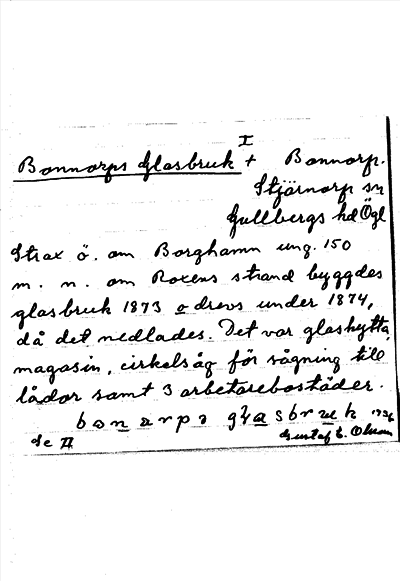 I
Bonnorps Glasbruk + Bonnorp.
Stjärnorp sn
Gullbergs hd Ögl
Strax ö. om Borghamn ung. 150
m. n. om Roxens strand byggdes
glasbruk 1873 o drevs under 1874,
då det nedlades. Det var glashytta,
magasin, cirkelsåg för sågning till
lådor samt 3 arbetarebostäder.
Se II
Gustaf E. Olsson